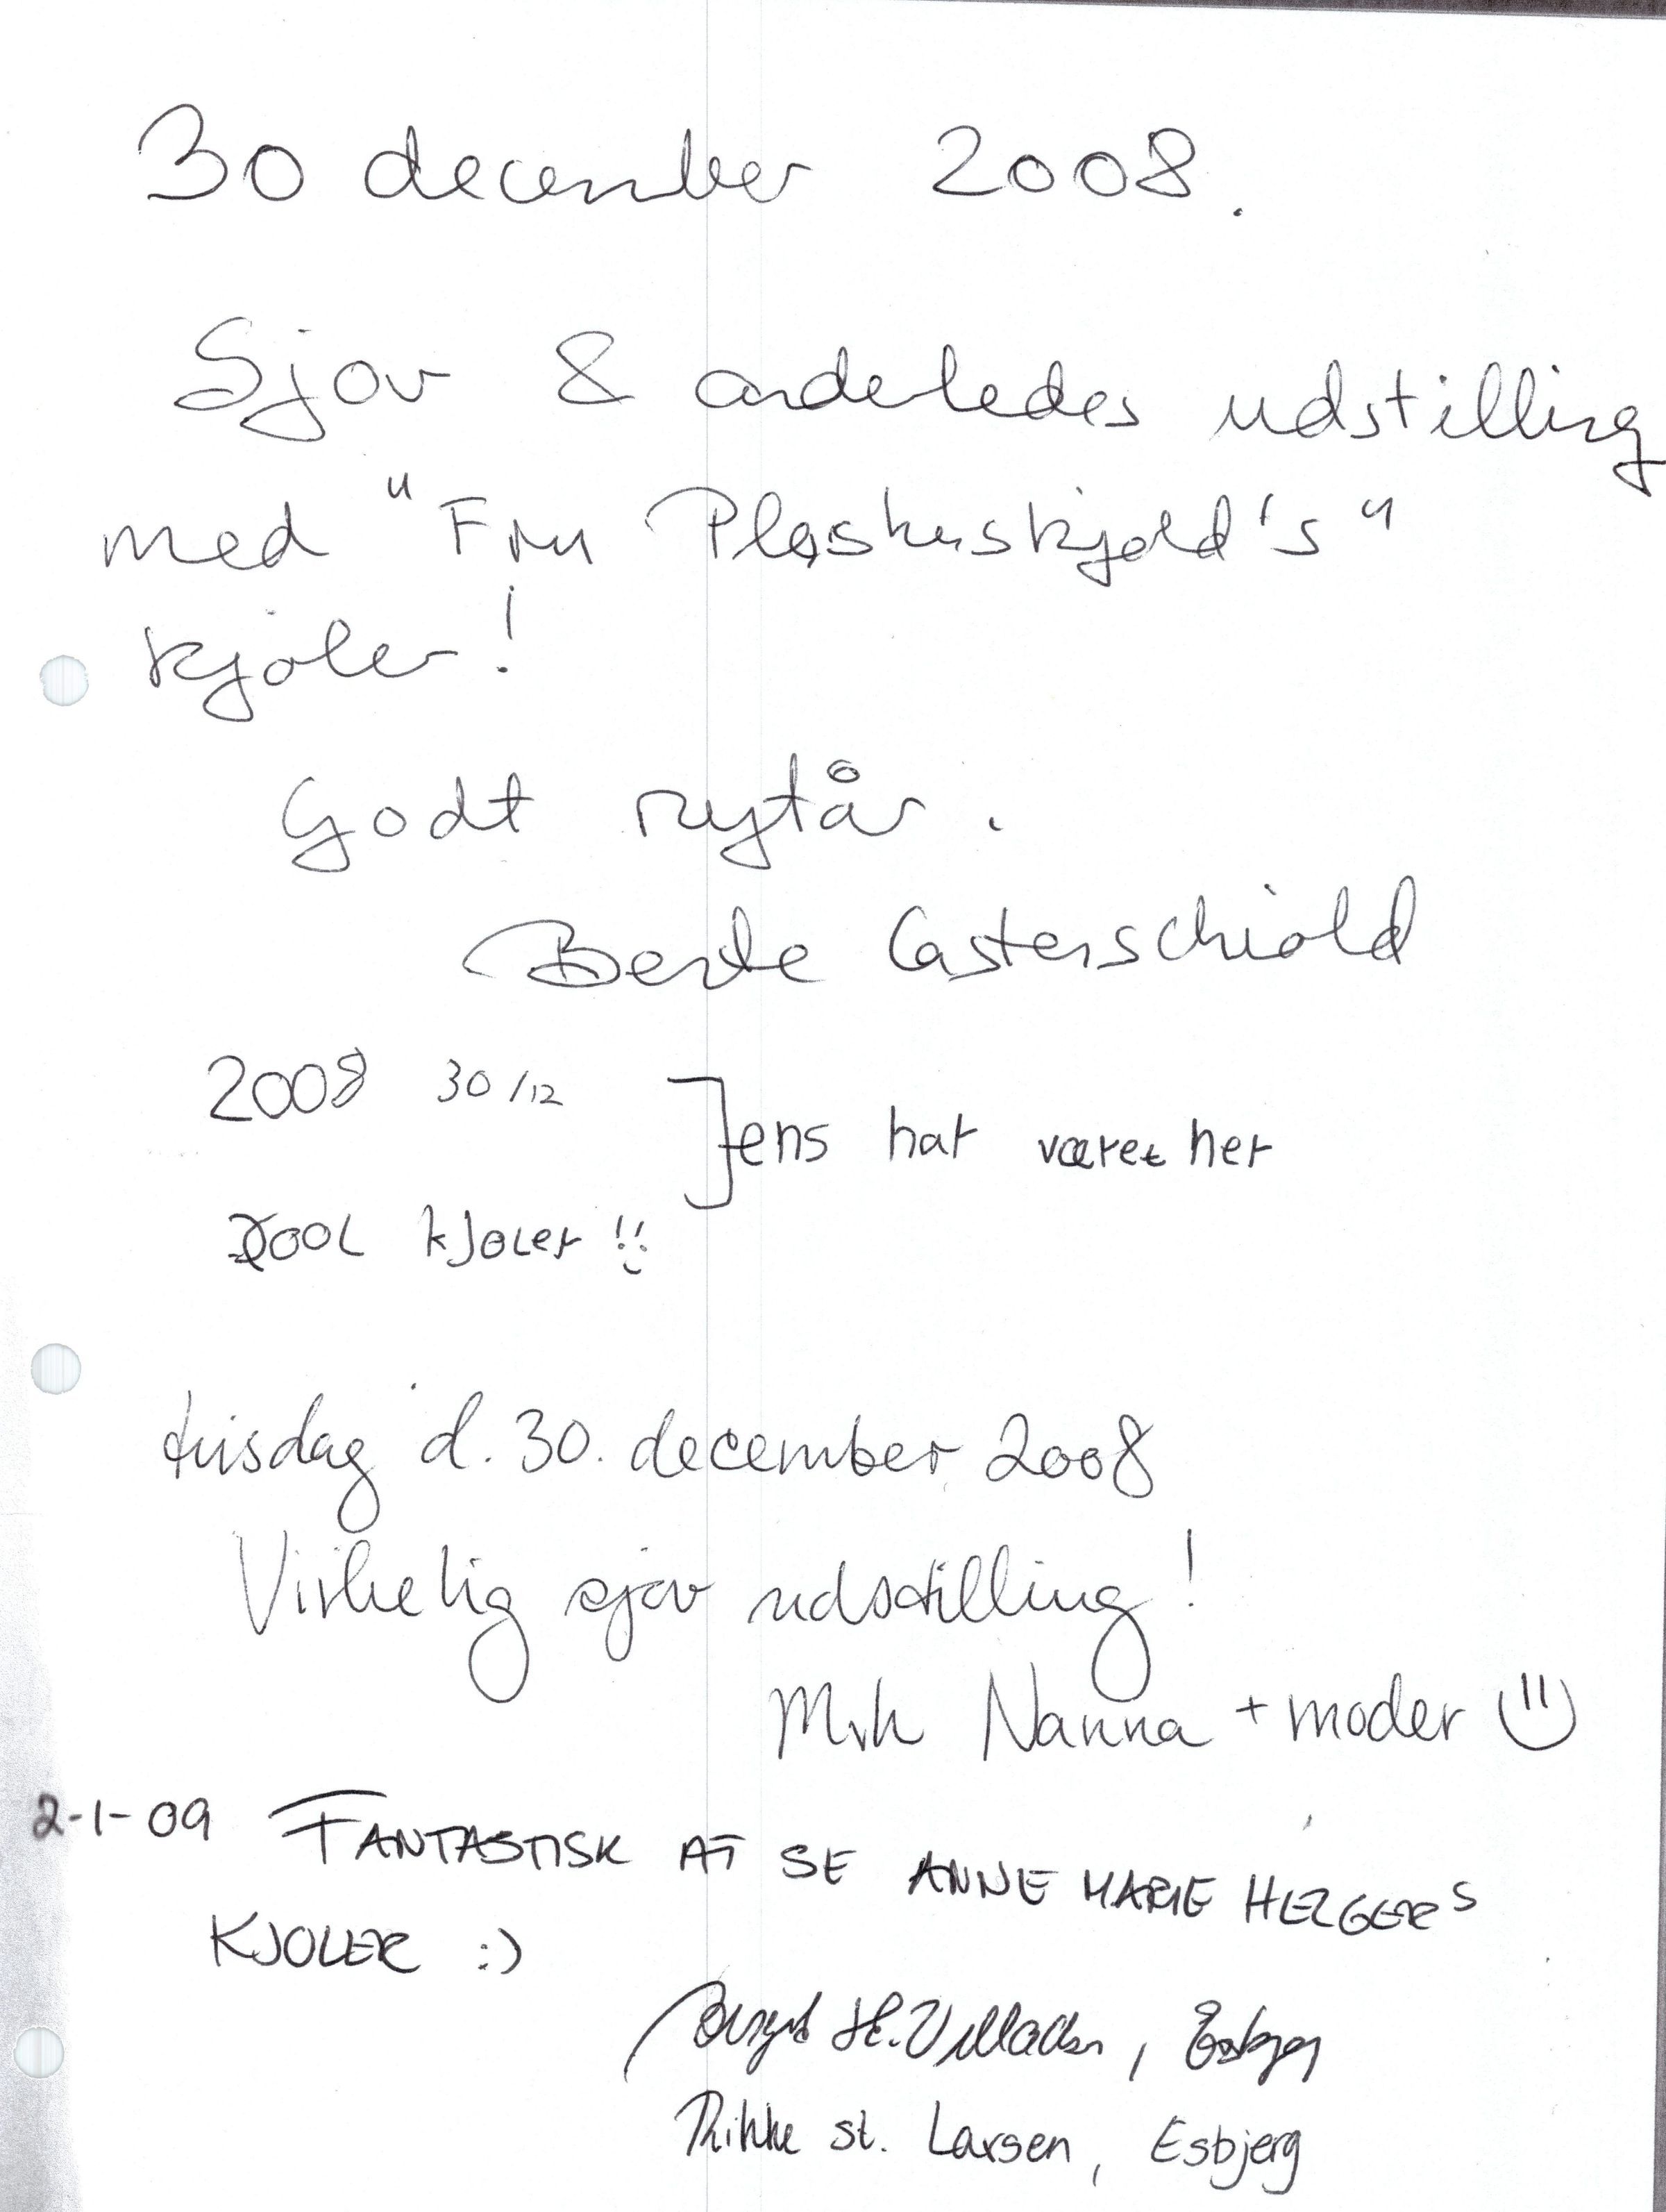 30 december 2008.
Sjov & anderledes udstilling
med "Fru Plaskuskjold's"
kjoler!
Godt nytår.
Bente Castenschiold
2008 30/12
Jens har været her
COOL kjoler !!
tirsdag d. 30. december 2008
Virkelig sjov udstilling!
Mvh Nanna + moder
2-1-09 FANTASTISK AT SE ANNE MARIE HELGERS
KJOLER :)
H. Esbjerg
Rikke St. Larsen, Esbjerg